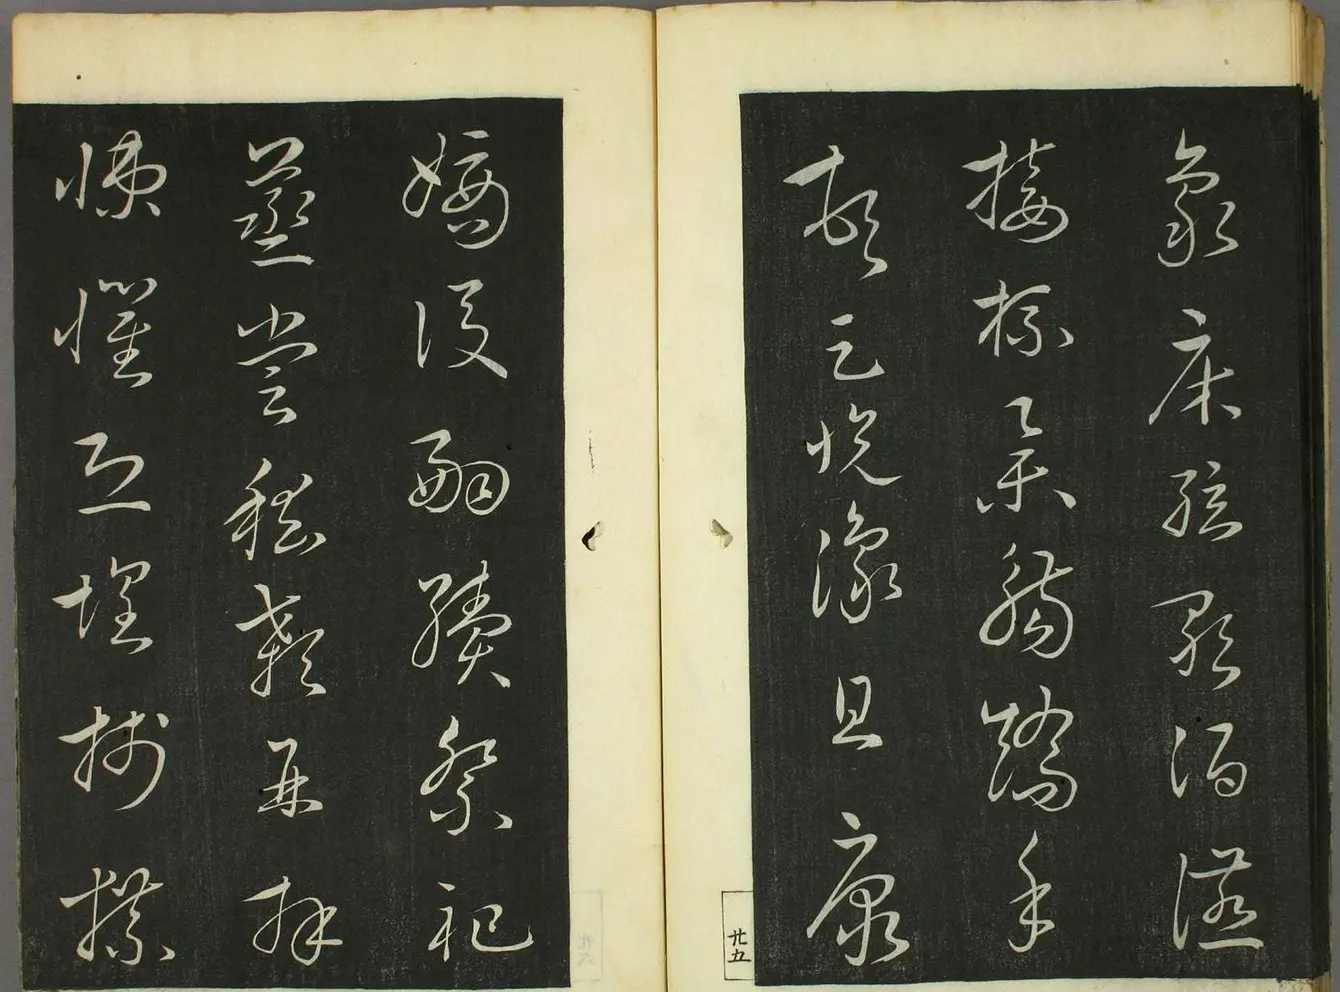 象床弦歌酒讌
接杯舉觴矯手
頓足悅豫且康
廿五
嫡後嗣續祭祀
蒸嘗稽顙再拜
悚懼恐惶牋牒